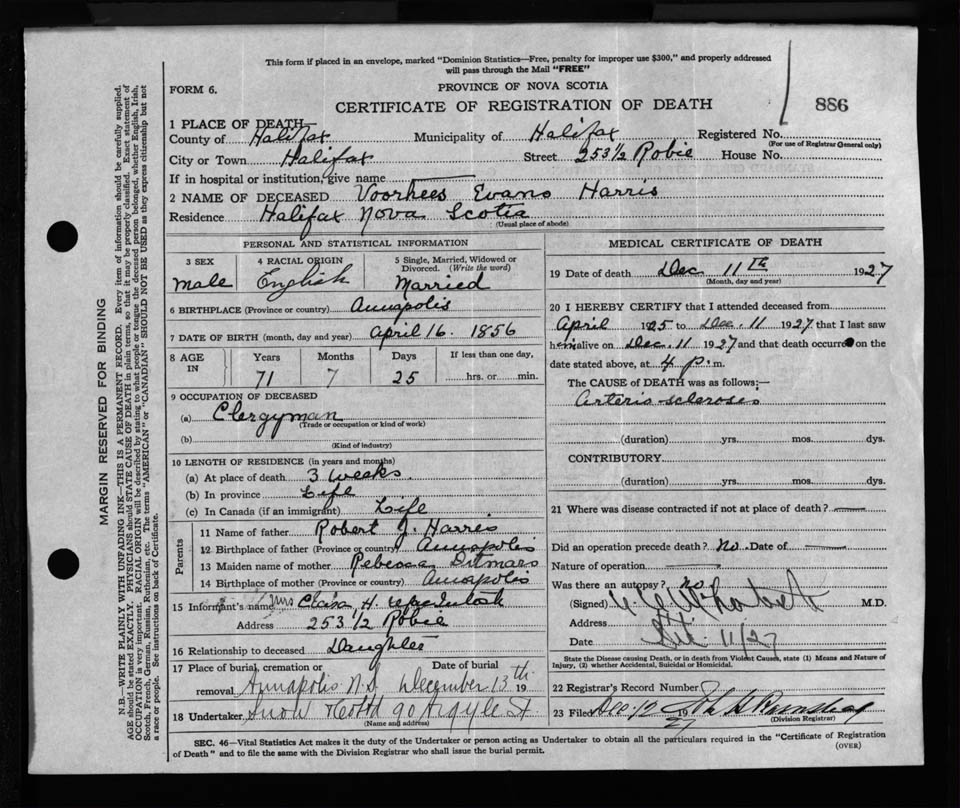 This form if placed in an envelope, marked "Dominion Statistics—Free, penalty for improper use $300," and properly addressed
will pass through the Mail "FREE"
FORM 6.
PROVINCE OF NOVA SCOTIA
CERTIFICATE OF REGISTRATION OF DEATH
886
1 PLACE OF DEATH—
County of Halifax Municipality of Halifax Registered No.
(For use of Registrar General only)
City or Town Halifax Street 253 1/2 Robie House No.
If in hospital or institution, give name
2 NAME OF DECEASED Voorhees Evans Harris
Residence Halifax Nova Scotia
(Usual place of abode)
PERSONAL AND STATISTICAL INFORMATION
3 SEX 4 RACIAL ORIGIN 5 Single, Married, Widowed or
Divorced. (Write the word)
Male English Married
6 BIRTHPLACE (Province or country) Annapolis
7 DATE OF BIRTH (month, day and year) April 16. 1856
8 AGE IN Years Months Days If less than one day,
71 7 25 hrs. or min.
9 OCCUPATION OF DECEASED
(a) Clergyman
(Trade or occupation or kind of work)
(b)
(Kind of industry)
10 LENGTH OF RESIDENCE (in years and months)
(a) At place of death 3 weeks.
(b) In province Life
(c) In Canada (if an immigrant) Life
Parents
11 Name of father Robert J. Harris
12 Birthplace of father (Province or country) Annapolis
13 Maiden name of mother Rebecca Ditmars
14 Birthplace of mother (Province or country) Annapolis
15 Informant's name Mrs Clara H. McIntosh
Address 253 1/2 Robie
16 Relationship to deceased Daughter
17 Place of burial, cremation or Date of burial
removal Annapolis N.S. December 13th 19
18 Undertaker Snow & Co Ltd 90 Argyle St
(Name and address)
MEDICAL CERTIFICATE OF DEATH
19 Date of death Dec 11th 1927
(Month, day and year)
20 I HEREBY CERTIFY that I attended deceased from
April 1925 to Dec. 11 1927 that I last saw
him alive on Dec. 11 1927 and that death occurred on the
date stated above, at 4 p. m.
The CAUSE of DEATH was as follows:—
Arterio-sclerosis
(duration) yrs. mos. dys.
CONTRIBUTORY
(duration) yrs. mos. dys.
21 Where was disease contracted if not at place of death?
Did an operation precede death? No. Date of
Nature of operation
Was there an autopsy? No
(Signed) M.D.
Address
Date 11/27
State the Disease causing Death, or in death from Violent Causes, state (1) Means and Nature of
Injury, (2) whether Accidental, Suicidal or Homicidal.
22 Registrar's Record Number
23 Filed Dec 12 27
(Division Registrar)
SEC. 46—Vital Statistics Act makes it the duty of the Undertaker or person acting as Undertaker to obtain all the particulars required in the "Certificate of Registration
of Death" and to file the same with the Division Registrar who shall issue the burial permit.
(OVER)
MARGIN RESERVED FOR BINDING
N.B.—WRITE PLAINLY WITH UNFADING INK—THIS IS A PERMANENT RECORD. Every item of information should be carefully supplied.
AGE should be stated EXACTLY. PHYSICIANS should STATE CAUSE OF DEATH in plain terms, so that it may be properly classified. Exact statement of
OCCUPATION is very important. RACIAL ORIGIN will be described by stating to what people or tongue the deceased person belonged, whether English, Irish,
Scotch, French, German, Russian, Ruthenian, etc. The terms "AMERICAN" or "CANADIAN" SHOULD NOT BE USED as they express citizenship but not
a race or people. See instructions on back of Certificate.